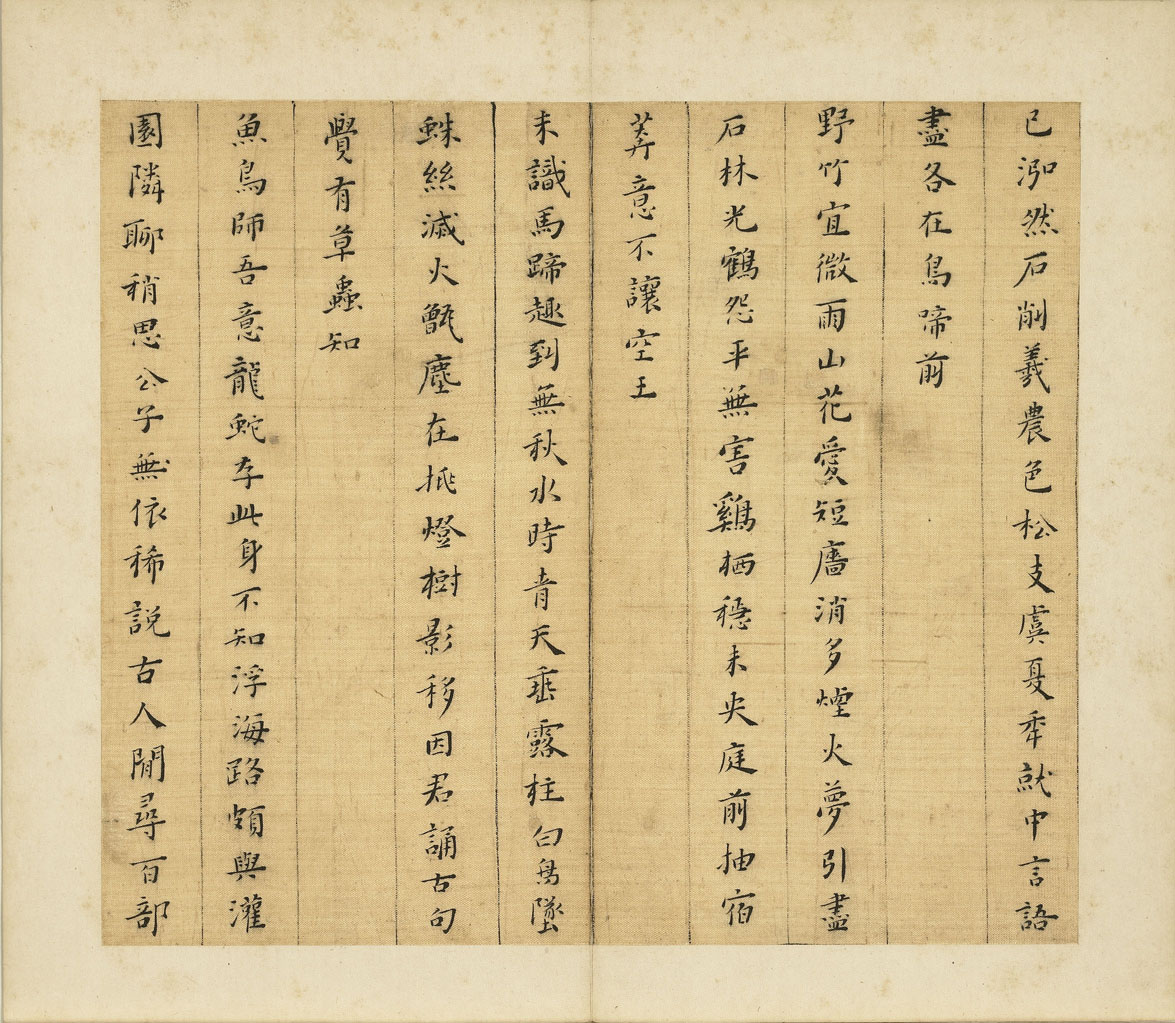 已泓然石削義農色松支虞夏年就中言語
盡各在鳥啼前
野竹宜微雨山花愛短廧消多煙火夢引盡
石林光鶴怨平無害鷄栖穩未央庭前抽宿
莽意不讓空王
未識馬蹄趣到無秋水時青天垂露柱白鳥墜
蛛絲滅火甑塵在挑燈樹影移因君誦古句
覺有草蟲知
魚鳥師吾意龍蛇存此身不知浮海路頗與灌
園隣聊稍思公子無依稀說古人閒尋百部